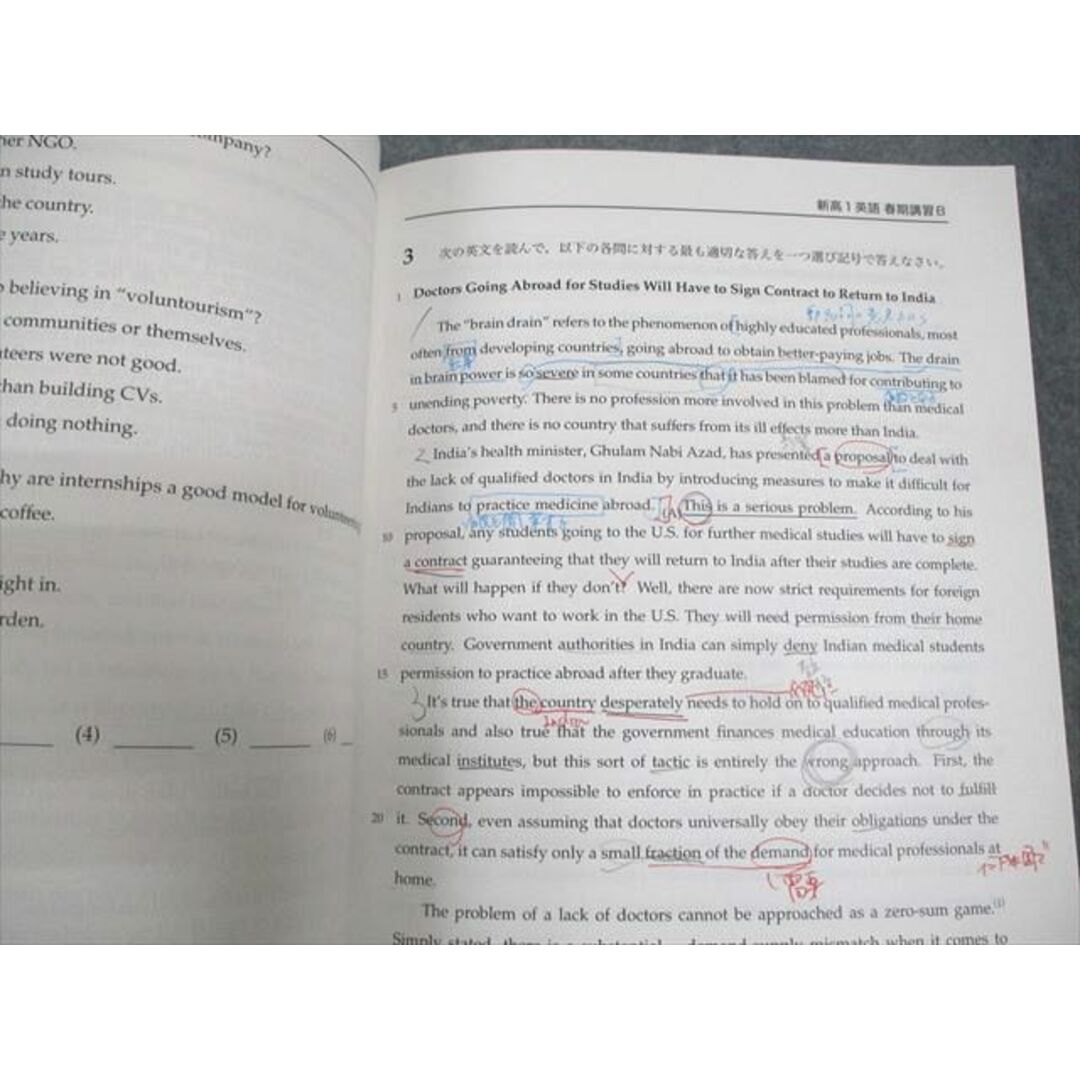 ompany?
her NGO.
n study tours.
he country.
e years.
o believing in "voluntourism"?
communities or themselves.
teers were not good.
han building CVs.
doing nothing.
hy are internships a good model for
coffee.
ight in.
rden.
(4) (5) (6)
新高1英語 春期講習B
3 次の英文を読んで，以下の各問に対する最も適切な答えを一つ選び記号で答えなさい。
1 Doctors Going Abroad for Studies Will Have to Sign Contract to Return to India
The "brain drain" refers to the phenomenon of highly educated professionals, most
often from developing countries, going abroad to obtain better-paying jobs. The drain
in brain power is so severe in some countries that it has been blamed for contributing to
5 unending poverty. There is no profession more involved in this problem than medical
doctors, and there is no country that suffers from its ill effects more than India.
2 India's health minister, Ghulam Nabi Azad, has presented a proposal to deal with
the lack of qualified doctors in India by introducing measures to make it difficult for
Indians to practice medicine abroad. (A) This is a serious problem. According to his
10 proposal, any students going to the U.S. for further medical studies will have to sign
a contract guaranteeing that they will return to India after their studies are complete.
What will happen if they don't? Well, there are now strict requirements for foreign
residents who want to work in the U.S. They will need permission from their home
country. Government authorities in India can simply deny Indian medical students
15 permission to practice abroad after they graduate.
3 It's true that the country desperately needs to hold on to qualified medical profes-
sionals and also true that the government finances medical education through its
medical institutes, but this sort of tactic is entirely the wrong approach. First, the
contract appears impossible to enforce in practice if a doctor decides not to fulfill
20 it. Second, even assuming that doctors universally obey their obligations under the
contract, it can satisfy only a small fraction of the demand for medical professionals at
home.
The problem of a lack of doctors cannot be approached as a zero-sum game.(1)
Simply stated, there is a substantial demand-supply mismatch when it comes to